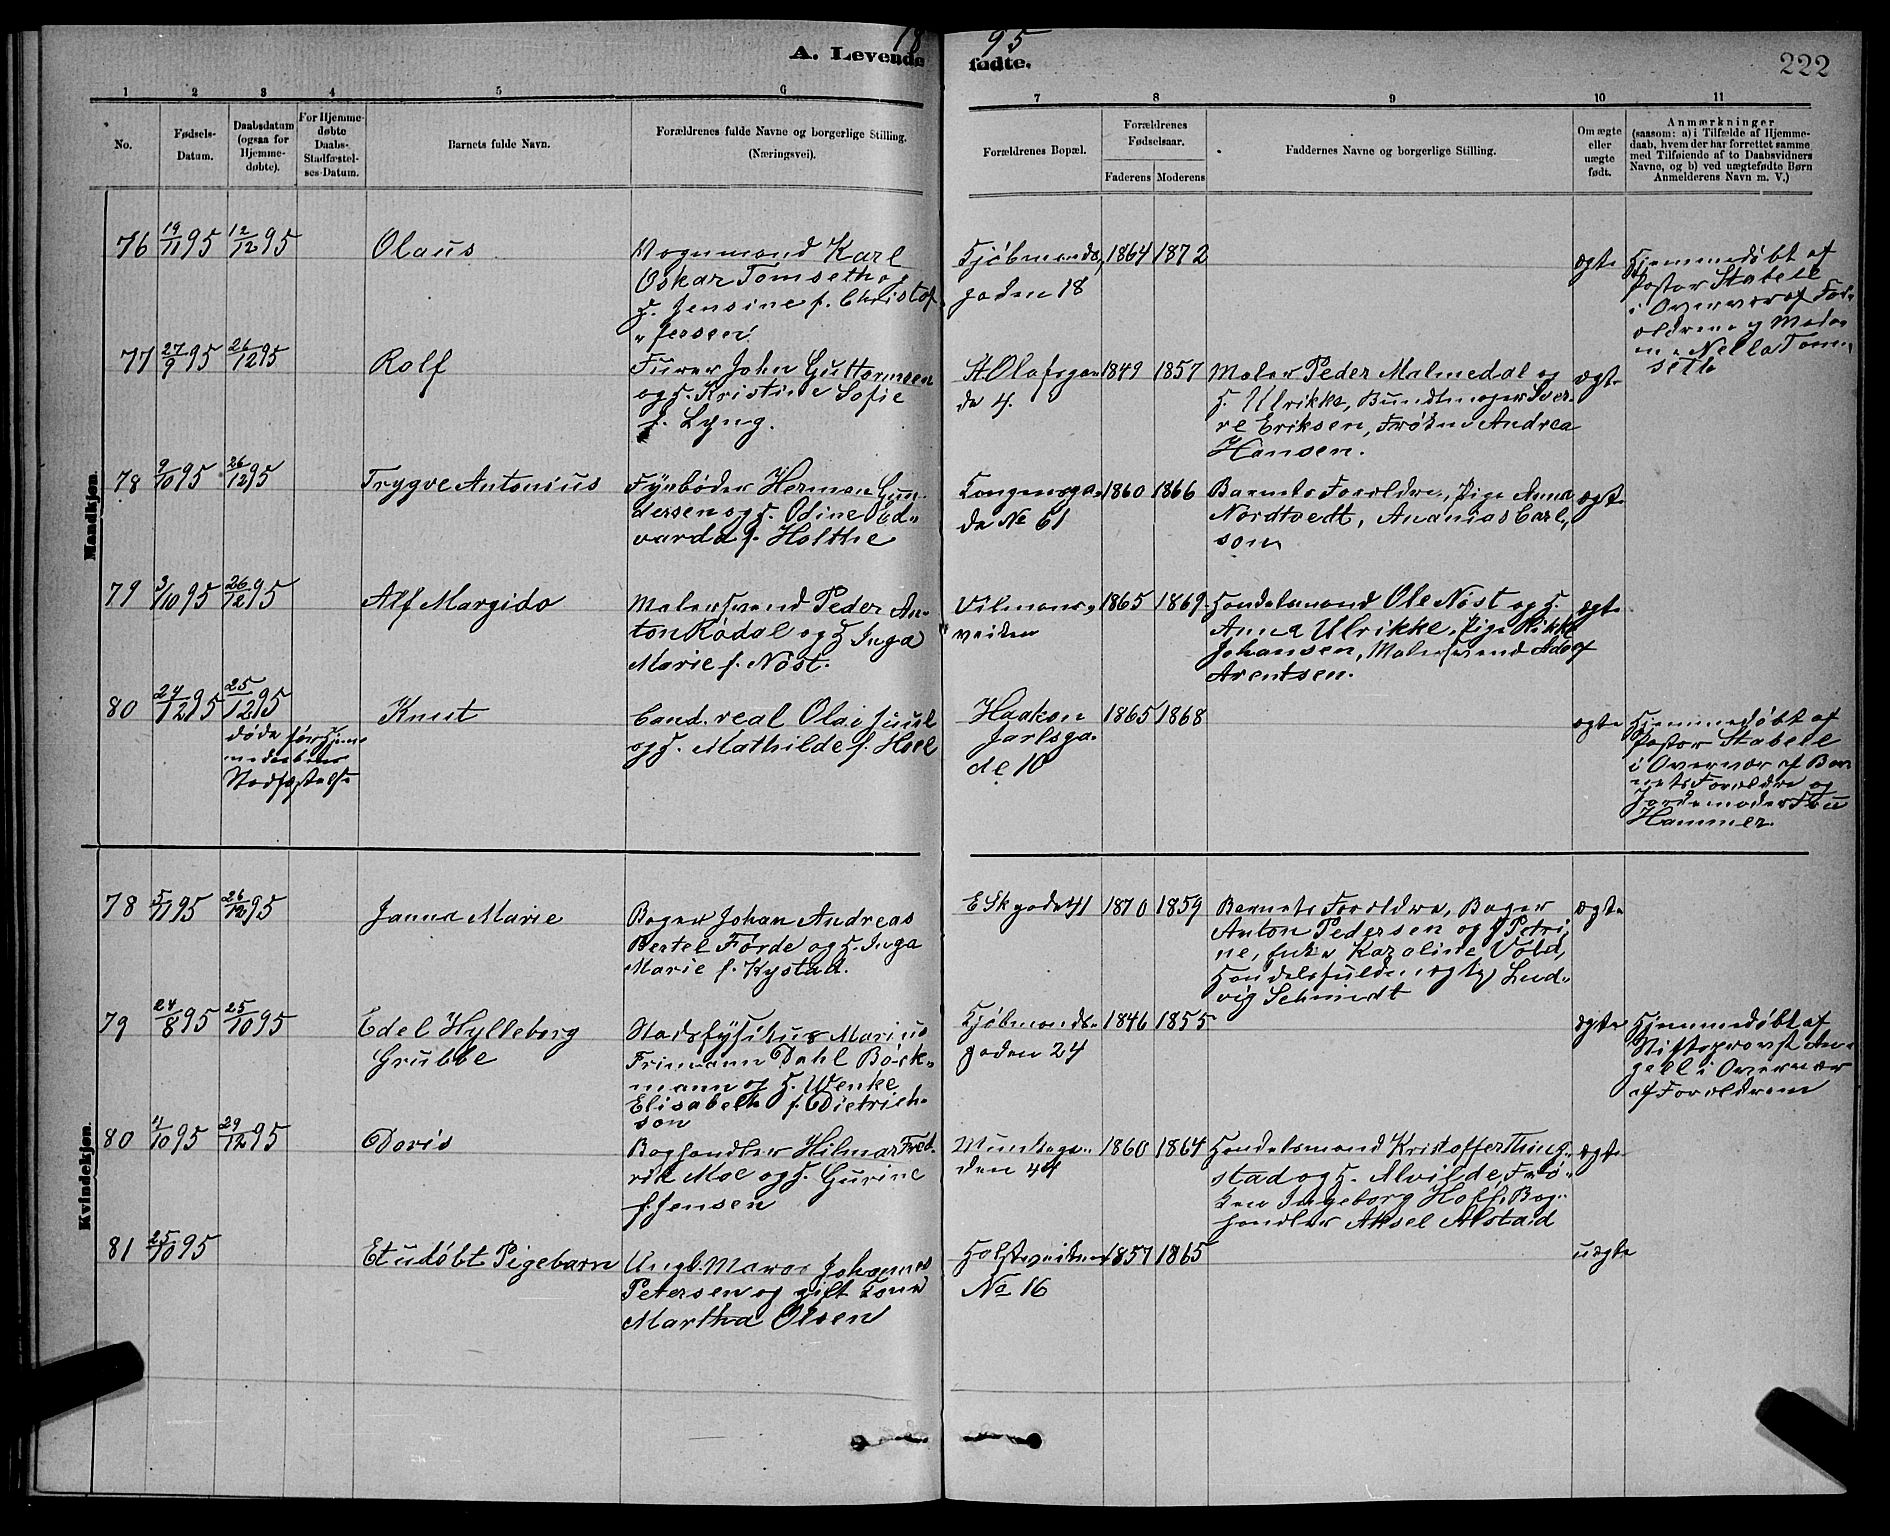 1895
A. Levende fødte.
222
1 2 3 4 5 6 7 8 9 10 11
No.
Fødsels-
Datum.
Daabsdatum
(ogsaa for
Hjemme-
døbte).
For Hjemme-
døbte
Daabs-
Stadfæstel-
ses-Datum.
Barnets fulde Navn.
Forældrenes fulde Navne og borgerlige Stilling.
(Næringsvei).
Forældrenes Bopæl.
Forældrenes
Fødselsaar.
Faderens Moderens
Faddernes Navne og borgerlige Stilling.
Om ægte
eller
uægte
født.
Anmærkninger
(saasom: a) i Tilfælde af Hjemme-
daab, hvem der har forrettet samme
med Tilføiende af to Daabsvidners
Navne, og b) ved uægtefødte Børn
Anmelderens Navn m. V.)
Mandkjøn.
76
19/11 95
12/12 95
Olaus
Vognmand Karl
Oskar Tomseth og
H. Jensine f. Christof-
fersen
Kjøbmands-
gaden 18
1864 1872
ægte
Hjemmedøbt af
Pastor Stabell
i Overvær af For-
ældrene og
Nella Tom-
seth
77
27/9 95
26/12 95
Rolf
Furer John Guttormsen
og H. Kristine Sofie
f. Lyng.
St Olafsga-
de 4.
1849 1857
Maler Peder Malmedal og
H. Ulrikke, Bundtmager Sver-
re Eriksen, Frøken Andrea
Hansen.
ægte
78
9/10 95
26/12 95
Trygve Antonius
Fyrbøder Herman Gun-
dersen og H. Odine Ed-
varda f. Holthe
Kongensga-
de No 61
1860 1866
Barnets Forældre, Pige Anna
Nordtvedt, Ananias Carl-
son
ægte
79
3/10 95
26/12 95
Alf Margido
Malersvend Peder An-
ton Rødal og H Inga
Marie f. Nøst.
Vilmans-
veiten
1865 1869
Handelsmand Ole Nøst og H.
Anna Ulrikke, Pige Rikke
Johansen, Malersvend Adolf
Arentsen.
ægte
80
24/12 95
25/12 95
døde før Hjem-
medaabens
Stadfæstelse
Knut
Cand. real Olai Juul
og H. Mathilde f. Hoel
Haakon
Jarlsga-
de 10
1865 1868
ægte
Hjemmedøbt af
Pastor Stabell
i Overvær af Bar-
nets Forældre og
Jordemoder Fru
Hammer.
Kvindekjøn.
78
5/11 95
26/12 95
Janna Marie
Bager Johan Andreas
Bertel Førde og H. Inga
Marie f. Kystad.
1870 1859
Barnets Forældre, Bager
Anton Pedersen og H Petri-
ne, Enke Karoline Vold,
Handelsfuldmægtig Lud-
vig Schmidt
ægte
79
24/8 95
25/10 95
Edel Hylleborg
Grubbe
Stadsfysikus Marius
Frimann Dahl Böck-
mann og H. Wenke
Elisabeth f. Dietrich-
son
Kjøbmands-
gaden 24
1846 1855
ægte
Hjemmedøbt af
Stiftsprovst An-
gell i Overvær
af Forældrene
80
4/10 95
29/12 95
Doris
Boghandler Hilmar Fred-
rik Moe og H. Gurine
f. Jensen
Munkega-
den 44
1860 1864
Handelsmand Kristoffer Thing-
stad og H. Alvilde, Frø-
ken Ingeborg Hoff, Bog-
handler Aksel Alstad
ægte
81
25/10 95
Et udøbt Pigebarn
Ungk. Murer Johannes
Petersen og gift Kone
Martha Olsen
Holstveiten
No 16
1857 1865
uægte